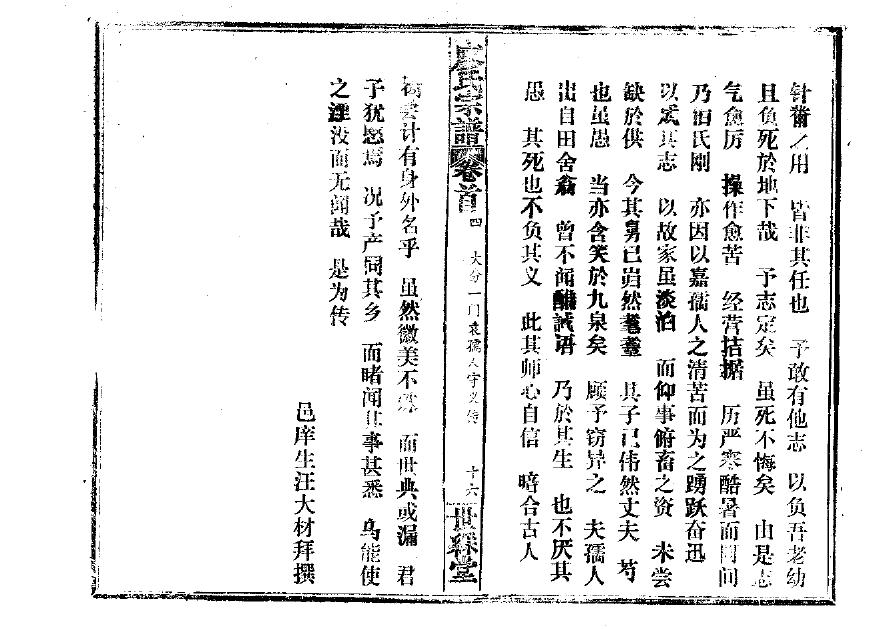 针黹之用 皆非其任也 予敢有他志 以负吾老幼
且负死於地下哉 予志定矣 虽死不悔矣 由是志
气愈厉 操作愈苦 经营拮据 历严寒酷暑而罔间
乃 氏刚 亦因以嘉孺人之清苦而为之踴跃奋迅
以 其志 以故家虽淡泊 而仰事俯畜之资 未尝
缺於供 今其舅已岿然耄耋 其子已伟然丈夫 芍
也虽愚 当亦含笑於九泉矣 顾予窃异之 夫孺人
出自田舍翁 曾不闻醮诫语 乃於其生 也不厌其
愚 其死也不负其义 此其师心自信 暗合古人
氏宗谱 卷首 四 大分一门袁孺人守义传 十六 世綵堂
尝计有身外名乎 虽然微美不 而世典或漏 君
子犹愍焉 况予产同其乡 而睹闻其事甚悉 乌能使
之湮没而无闻哉 是为传
邑庠生汪大材拜撰